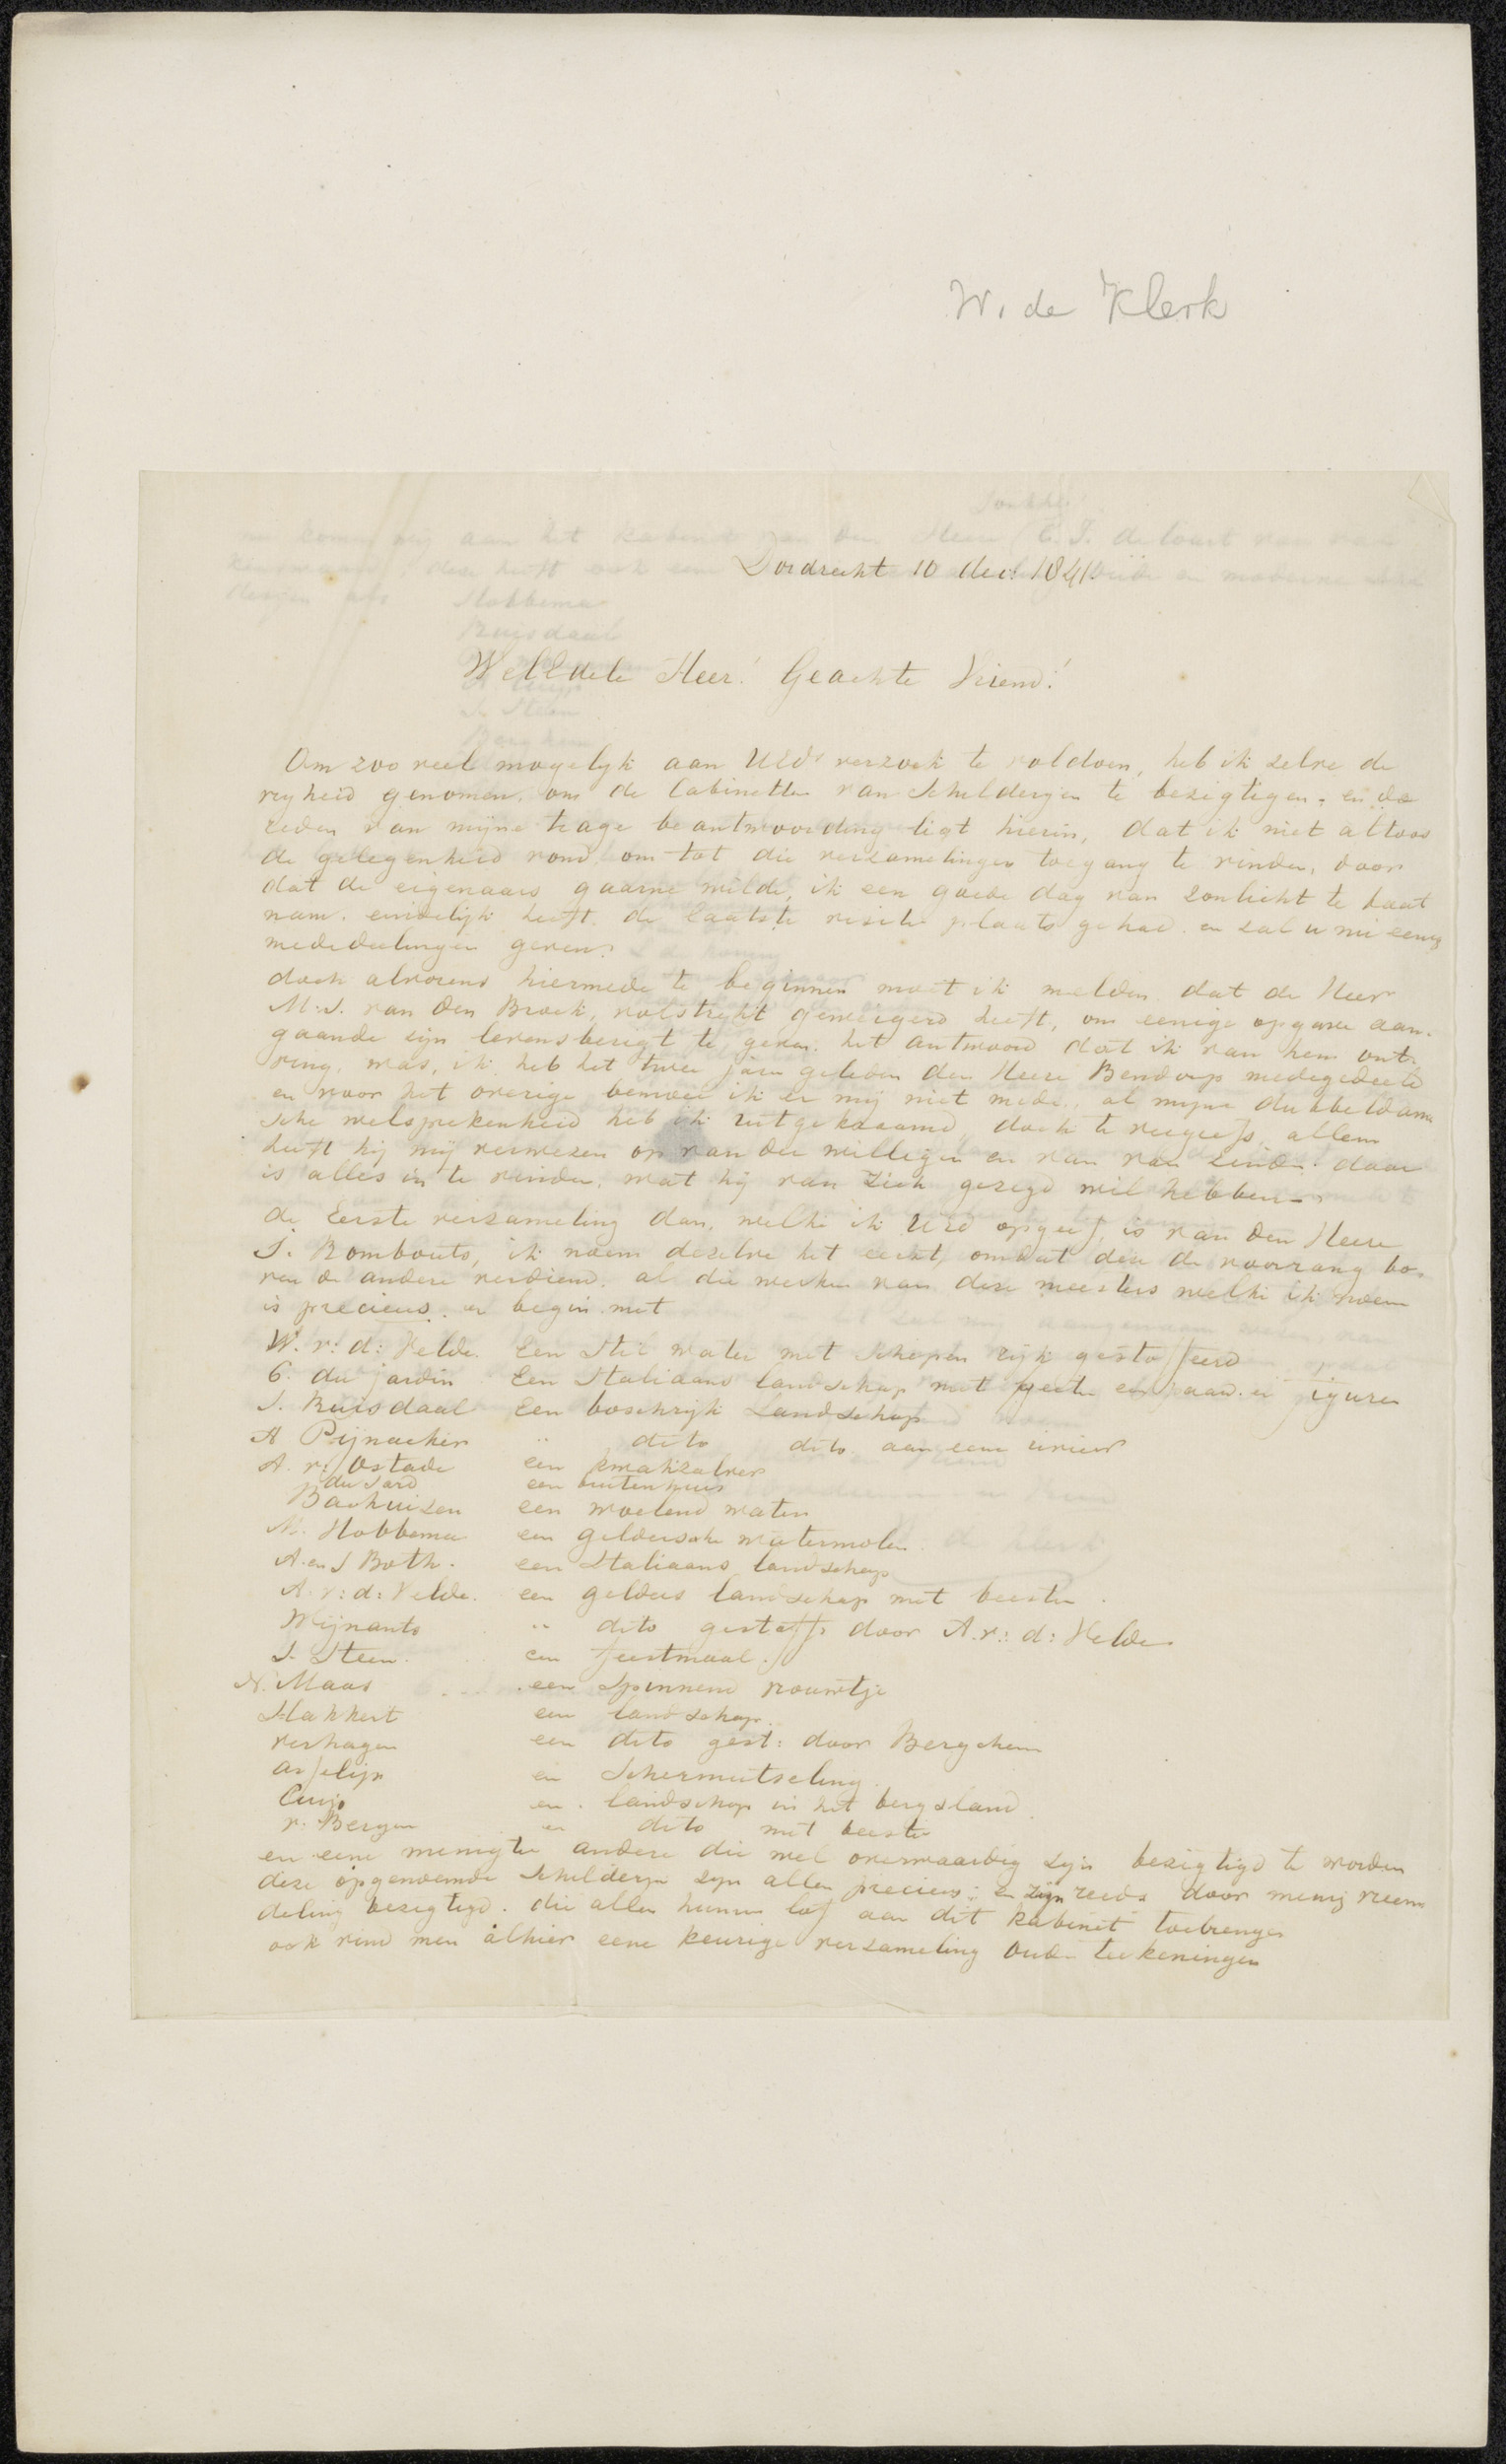 W. de Klerk
Dordrecht 10 dec: 1841.
WelEdele Heer! Geachte Vriend!
Om zoo veel mogelyk aan UEds verzoek te voldoen, heb ik zelve de
vryheid genomen, om de Cabinetten van Schilderyen te bezigtigen, en de
reden van mijne trage beantwoording ligt hierin, dat ik niet altoos
de gelegenheid vond om tot die verzamelingen toegang te vinden, door
dat de eigenaars gaarne wilde, ik een goede dag van zonlicht te baat
nam. eindelijk heeft de laatste visite plaats gehad en zal u nu eenig
mededeelingen geven:
doch alvorens hiermede te beginnen moet ik melden dat de Heer
M: J. van den Broek, volstrekt geweigerd heeft, om eenige opgave aan-
gaande zijn levensberigt te geven. het antwoord dat ik van hem ont-
ving, was, ik heb het twee jaren geleden den Heere Bendorp medegedeeld
en voor het overige bemoei ik er mij niet mede, al mijne dubbeldam
sche welsprekenheid heb ik uitgekraamd, doch te vergeefs, alleen
heeft hij mij verwezen op van der Willigen en van van Einden. daar
is alles in te vinden, wat hij van zich gezegd wil hebben.
de Eerste verzameling dan, welke ik UEd opgeef, is van den Heere
J. Rombouts, ik noem dezelve het eerst, omdat deze de voorrang bo-
ven de andere verdiend. al die werken van deze meesters welke ik noem
is precieus. en begin met
W. v: d: Velde. Een Stil water met Schepen rijk gestoffeerd
C. du jardin Een Italiaans landschap met geeten en paard. en figuren
J. Ruisdaal Een boschrijk Landschap
A Pijnacker " dito dito aan eene rivier
A. v: Ostade een kwakzalver
du Sard een buitenhuis
Bachuizen een woelend water
M. Hobbema een geldersche watermolen
A. en J Both. een Italiaans landschap
A. v: d: Velde. een gelders landschap met beesten.
Wijnants " dito gestoff: door A. v: d: Velde
J. Steen. een feestmaal.
N. Maas een Spinnend vrouwtje
Hakkert een landschap.
verhagen een dito gest: door Bergchem
Asselijn en Schermutseling.
Cuijp en. landschap in het bergsland.
v: Bergen en dito met beesten
en eene menigte andere die wel overwaardig zijn bezigtigd te worden
deze opgenoemde Schilderyen zyn allen precieus; en zijn reeds door menig vreem
deling bezigtigd. die allen hunnen lof aan dit kabinet toebrengen
ook vind men alhier eene keurige verzameling oude teekeningen